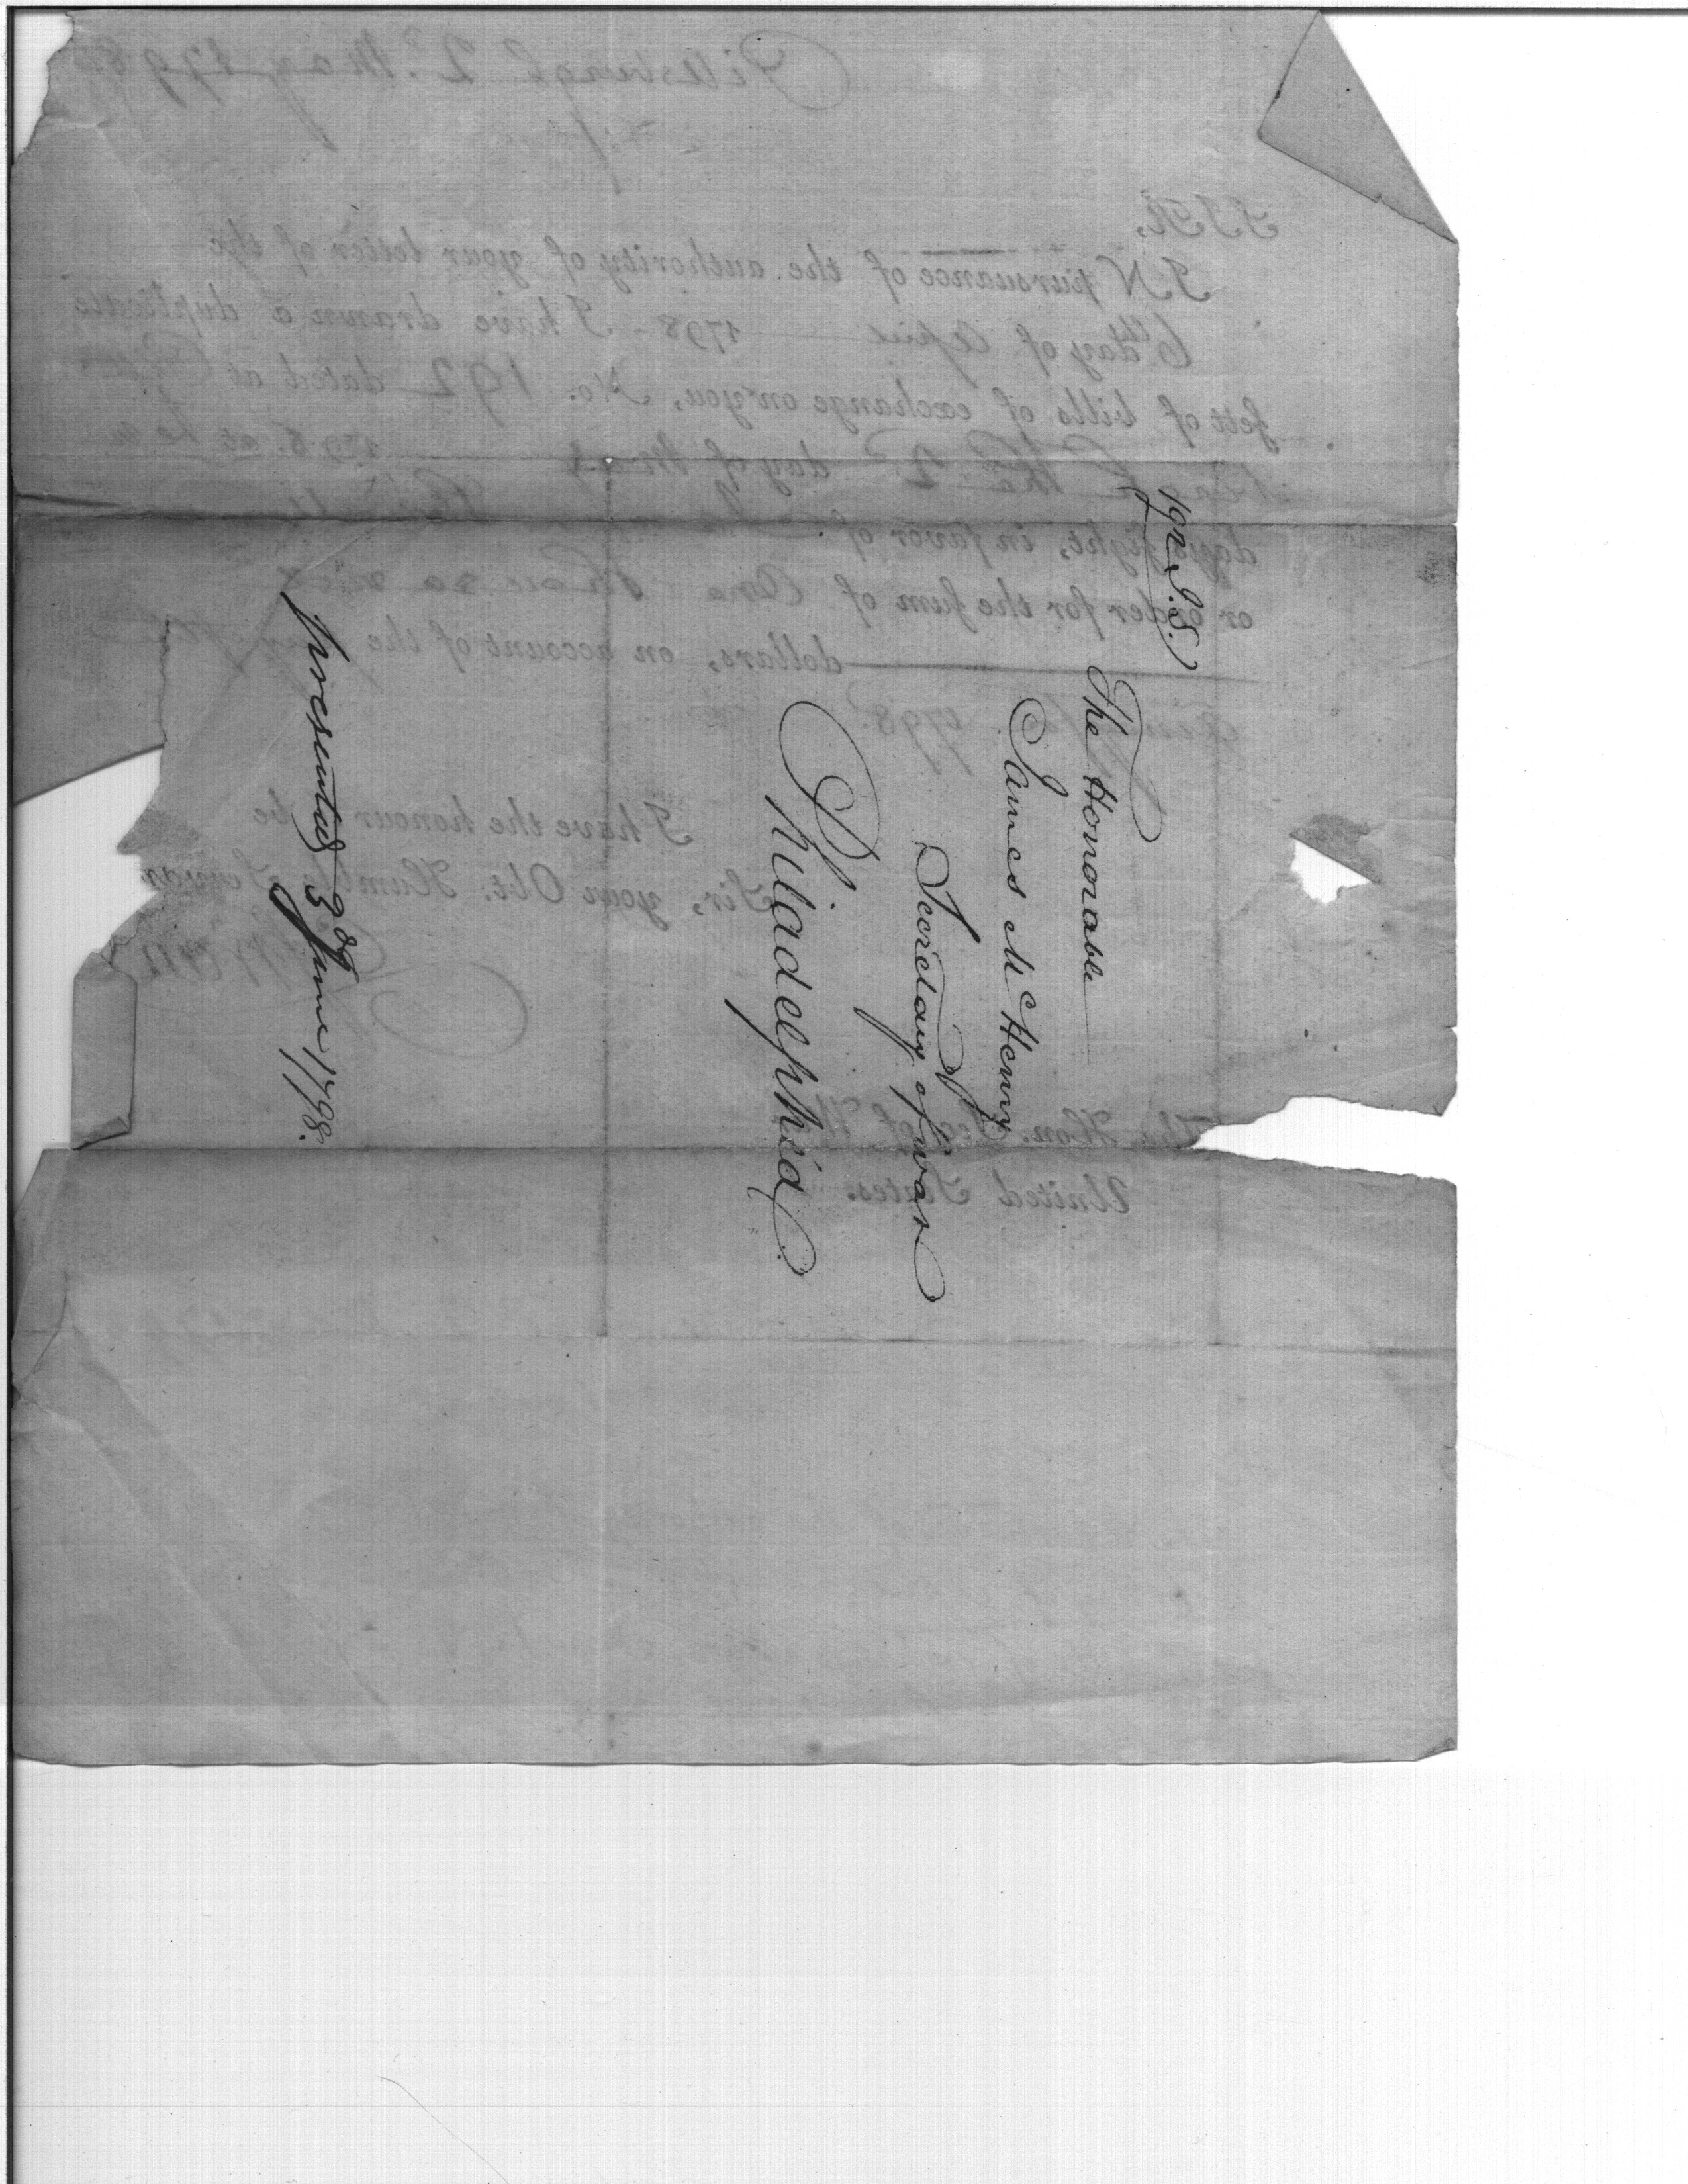 192 I.S.
The Honorable
James McHenry
Secretary of war
Philadelphia
presented 9th June 1798.
Pittsburgh 2d. May 1798
SIR,
IN pursuance of the authority of your letter of the
6th day of April 1798 - I have drawn a duplicate
sett of bills of exchange on you, No. 192 dated at Pitts-
burgh the 2d day of May 1798. at
days sight, in favor of
or order for the sum of One thousand
dollars, on account of the
1798.
I have the honour be
Sir, your Obt. Humble
The Hon. Sec. of
United States.